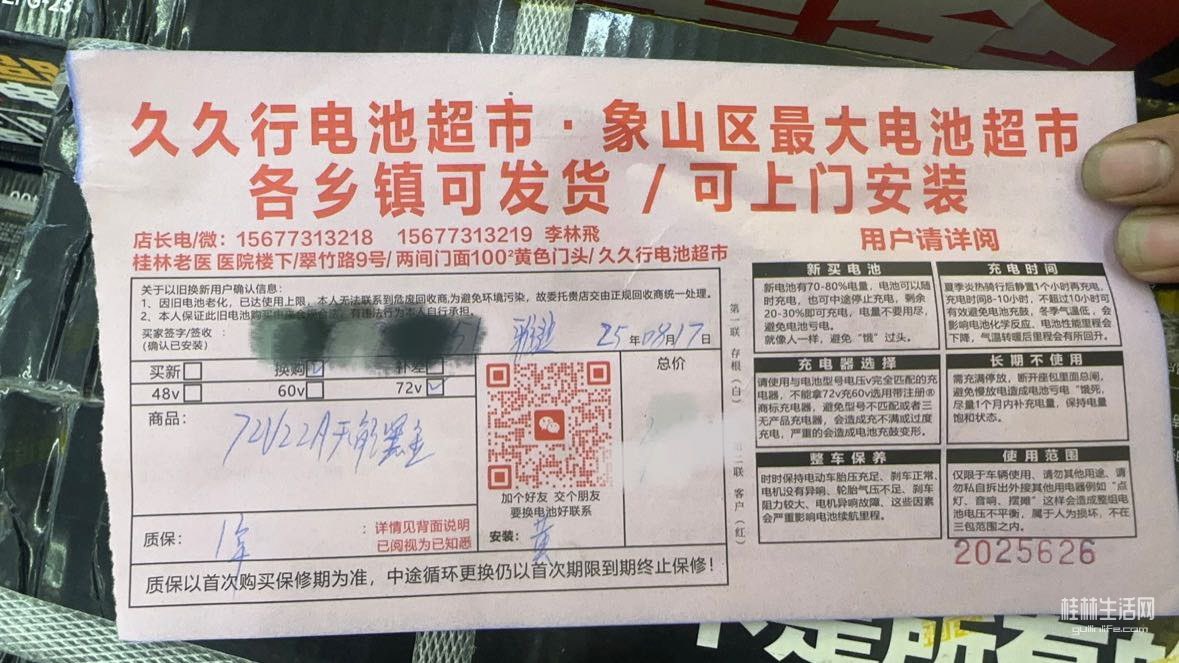 久久行电池超市·象山区最大电池超市
各乡镇可发货 / 可上门安装
店长电/微：15677313218 15677313219 李林飛
桂林老医 医院楼下/翠竹路9号/ 两间门面100²黄色门头/ 久久行电池超市
用户请详阅
关于以旧换新用户确认信息：
1、因旧电池老化，已达使用上限，本人无法联系到危废回收商,为避免环境污染，故委托贵店交由正规回收商统一处理。
2、本人保证此旧电池购买
有违法行为本人自行承担。
买家签字/签收：
(确认已安装)
25年08月17日
买新 换购 补差
48v 60v 72v
总价
商品：
72V22A天能黑金
加个好友 交个朋友
要换电池好联系
质保：1年
：详情见背面说明
已阅视为已知悉
安装：黄
质保以首次购买保修期为准，中途循环更换仍以首次期限到期终止保修！
第一联 存根（白）
第二联 客户（红）
新买电池
新电池有70-80%电量，电池可以随
时充电，也可中途停止充电，剩余
20-30%即可充电，电量不要用尽，
避免电池亏电。
就像人一样，避免“饿”过头。
充电时间
夏季炎热骑行后静置1个小时再充电，
充电时间8-10小时，不超过10小时可
有效避免电池充鼓，冬季气温低，会
影响电池化学反应，电池性能里程会
下降，气温转暖后里程会有所回升。
充电器选择
请使用与电池型号电压v完全匹配的充
电器，不能拿72v充60v选用带注册®
商标充电器，避免型号不匹配或者三
无产品充电器，会造成充不满或过度
充电，严重的会造成电池充鼓变形。
长期不使用
需充满停放，断开座包里面总闸，
避免慢放电造成电池亏电“饿死，
尽量1个月内补充电量，保持电量
饱和状态。
整车保养
时时保持电动车胎压充足、刹车正常、
电机没有异响、轮胎气压不足、刹车
阻力较大、电机异响故障、这些因素
会严重影响电池续航里程。
使用范围
仅限于车辆使用、请勿其他用途、请
勿私自拆出外接其他用电器例如“点
灯、音响、摆摊”这样会造成整组电
池电压不平衡，属于人为损坏，不在
三包范围之内。
2025626
桂林生活网
guilinlife.com